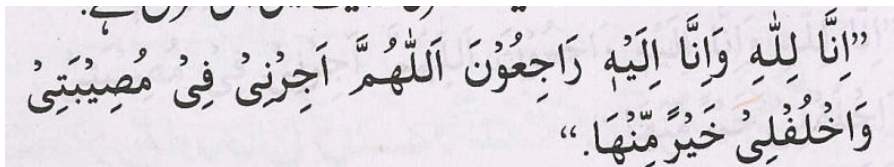 ”اِنَّا لِلّٰهِ وَاِنَّا اِلَيْهِ رَاجِعُوْنَ اَللّٰهُمَّ اَجِرْنِىْ فِىْ مُصِيْبَتِىْ
وَاخْلُفْلِىْ خَيْرً مِّنْهَا.“